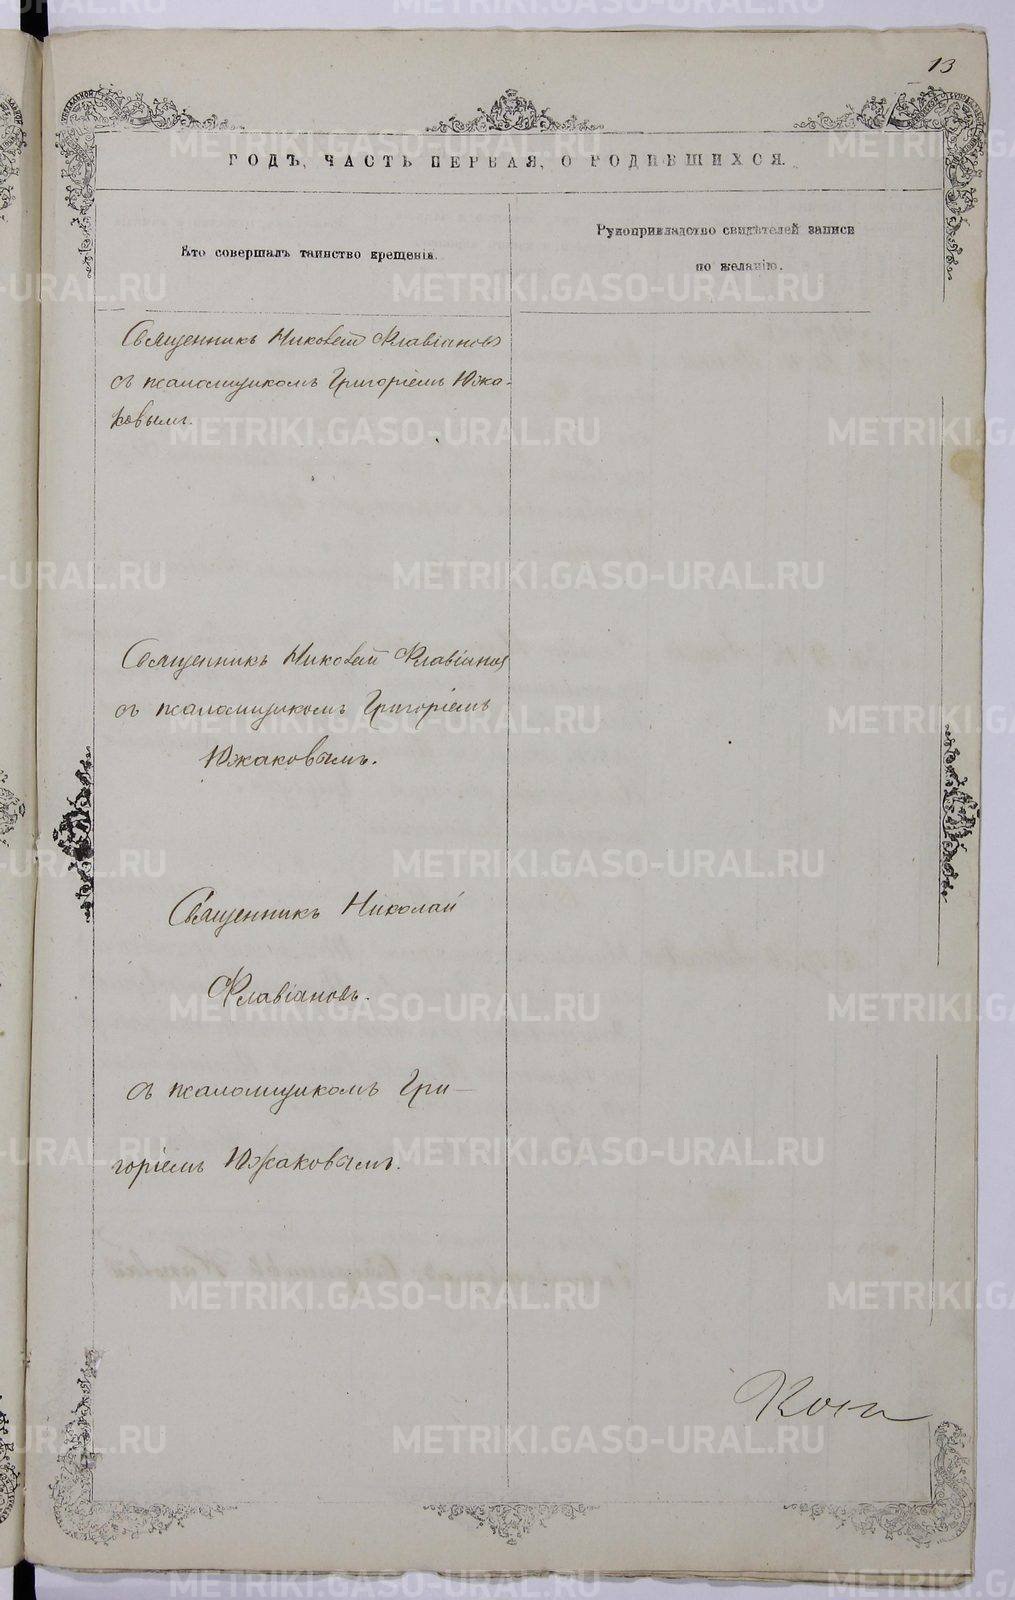 13
ГОДЪ, ЧАСТЬ ПЕРВАЯ, О РОДИВШИХСЯ.
Кто совершалъ таинство крещенія.
Рукоприкладство свидѣтелей записи
по желанію.
Священникъ Николай Флавіановъ
съ псаломщикомъ Григоріемъ Южа-
ковымъ.
Священникъ Николай Флавіановъ
съ псаломщикомъ Григоріемъ
Южаковымъ.
Священникъ Николай
Флавіановъ.
съ псаломщикомъ Гри-
горіемъ Южаковымъ.
METRIKI.GASO-URAL.RU